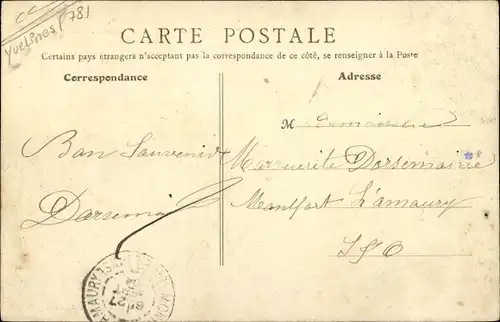 Yvelines (78)
CARTE POSTALE
Certains pays étrangers n'acceptant pas la correspondance de ce côté, se renseigner à la Poste
Correspondance
Adresse
Mademoiselle
Bon Souvenir
Marguerite Dorsemaine
Darsemai
Montfort L'amaury
S&O